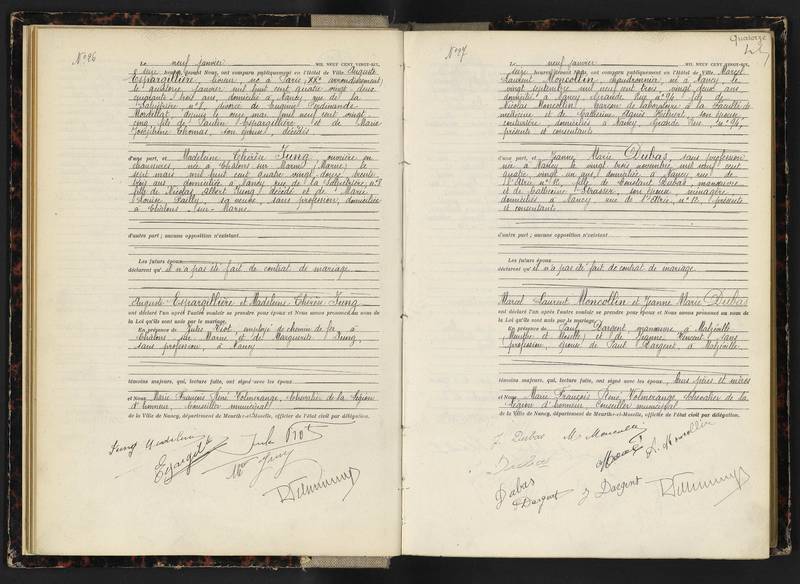 N° 96
Le neuf janvier MIL NEUF CENT VINGT-SIX,
heures, devant Nous, ont comparu publiquement en l'Hôtel de Ville, Auguste
Espargillière, né à Paris, XXe arrondissement,
le quatorze janvier mil huit cent quatre vingt deux
quarante trois ans, domicilié à Nancy rue de la
Salpêtrière n° 7, divorcé de Eugénie Ferdinande
Mordillat, depuis le onze mai mil neuf cent vingt
cinq, fils de Espargillière et de Marie
Joséphine Thomas, son épouse, décédés
d'une part, et Madeleine Thérèse Jung, ouvrière en
chaussures née à Châlons sur Marne (Marne) le
sept mars mil huit cent quatre vingt douze, trente
trois ans, domiciliée à Nancy rue de la Salpêtrière, n° 7
fille de Nicolas Albert Jung décédé et de Marie
Louise Pailly, sa veuve, sans profession, domiciliée
à Châlons sur Marne
d'autre part ; aucune opposition n'existant
Les futurs époux
déclarent qu'il n'a pas été fait de contrat de mariage.
Auguste Espargillière et Madeleine Thérèse Jung
ont déclaré l'un après l'autre vouloir se prendre pour époux et Nous avons prononcé au nom de
la Loi qu'ils sont unis par le mariage.
En présence de Jules employé de chemin de fer à
Châlons sur Marne et de Marguerite Jung,
sans profession, à Nancy
témoins majeurs, qui, lecture faite, ont signé avec les époux
et Nous Marie François René Volmerange, chevalier de la Légion
d'honneur, Conseiller municipal
de la Ville de Nancy, département de Meurthe-et-Moselle, officier de l'état civil par délégation.
Jung Madeleine
Jules
Jung
N° 97
Quatorze
Le neuf janvier MIL NEUF CENT VINGT-SIX,
onze heures, devant Nous, ont comparu publiquement en l'Hôtel de Ville, Marcel
Laurent Moncollin, chaudronnier, né à Nancy, le
vingt septembre mil neuf cent trois, vingt deux ans
domicilié à Nancy Grande Rue n° 94, fils de
Nicolas Moncollin, garçon de laboratoire à la Faculté de
médecine et de Catherine Agnès son épouse
couturière, domiciliés à Nancy, Grande Rue, n° 94,
présents et consentants
d'une part, et Jeanne Marie Dubas, sans profession
née à Nancy le vingt trois novembre mil neuf cent
quatre, vingt un ans, domiciliée à Nancy, rue de
n° 12, fille de Constant Dubas, manœuvre
et de Catherine Strasser, son épouse, ménagère
domiciliés à Nancy rue de n° 12, présents
et consentants
d'autre part ; aucune opposition n'existant
Les futurs époux
déclarent qu'il n'a pas été fait de contrat de mariage
Marcel Laurent Moncollin et Jeanne Marie Dubas
ont déclaré l'un après l'autre vouloir se prendre pour époux et Nous avons prononcé au nom de
la Loi qu'ils sont unis par le mariage.
En présence de Paul Dargent manœuvre à Malzéville
(Meurthe et Moselle) et de Jeanne Vincent, sans
profession, épouse de Paul Dargent, à Malzéville
témoins majeurs, qui, lecture faite, ont signé avec les époux, leurs pères et mères
et Nous Marie François René Volmerange chevalier de la
Légion d'honneur Conseiller municipal
de la Ville de Nancy, département de Meurthe-et-Moselle, officier de l'état civil par délégation.
J. Dubas
Dubas
Dubas
Dargent J Dargent